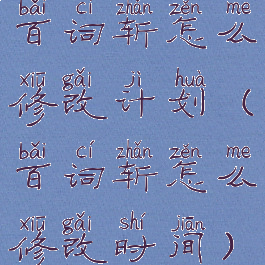 bǎi cí zhǎn zěn me
百词斩怎么
xiū gǎi jì huà
修改计划（
bǎi cí zhǎn zěn me
百词斩怎么
xiū gǎi shí jiān
修改时间）